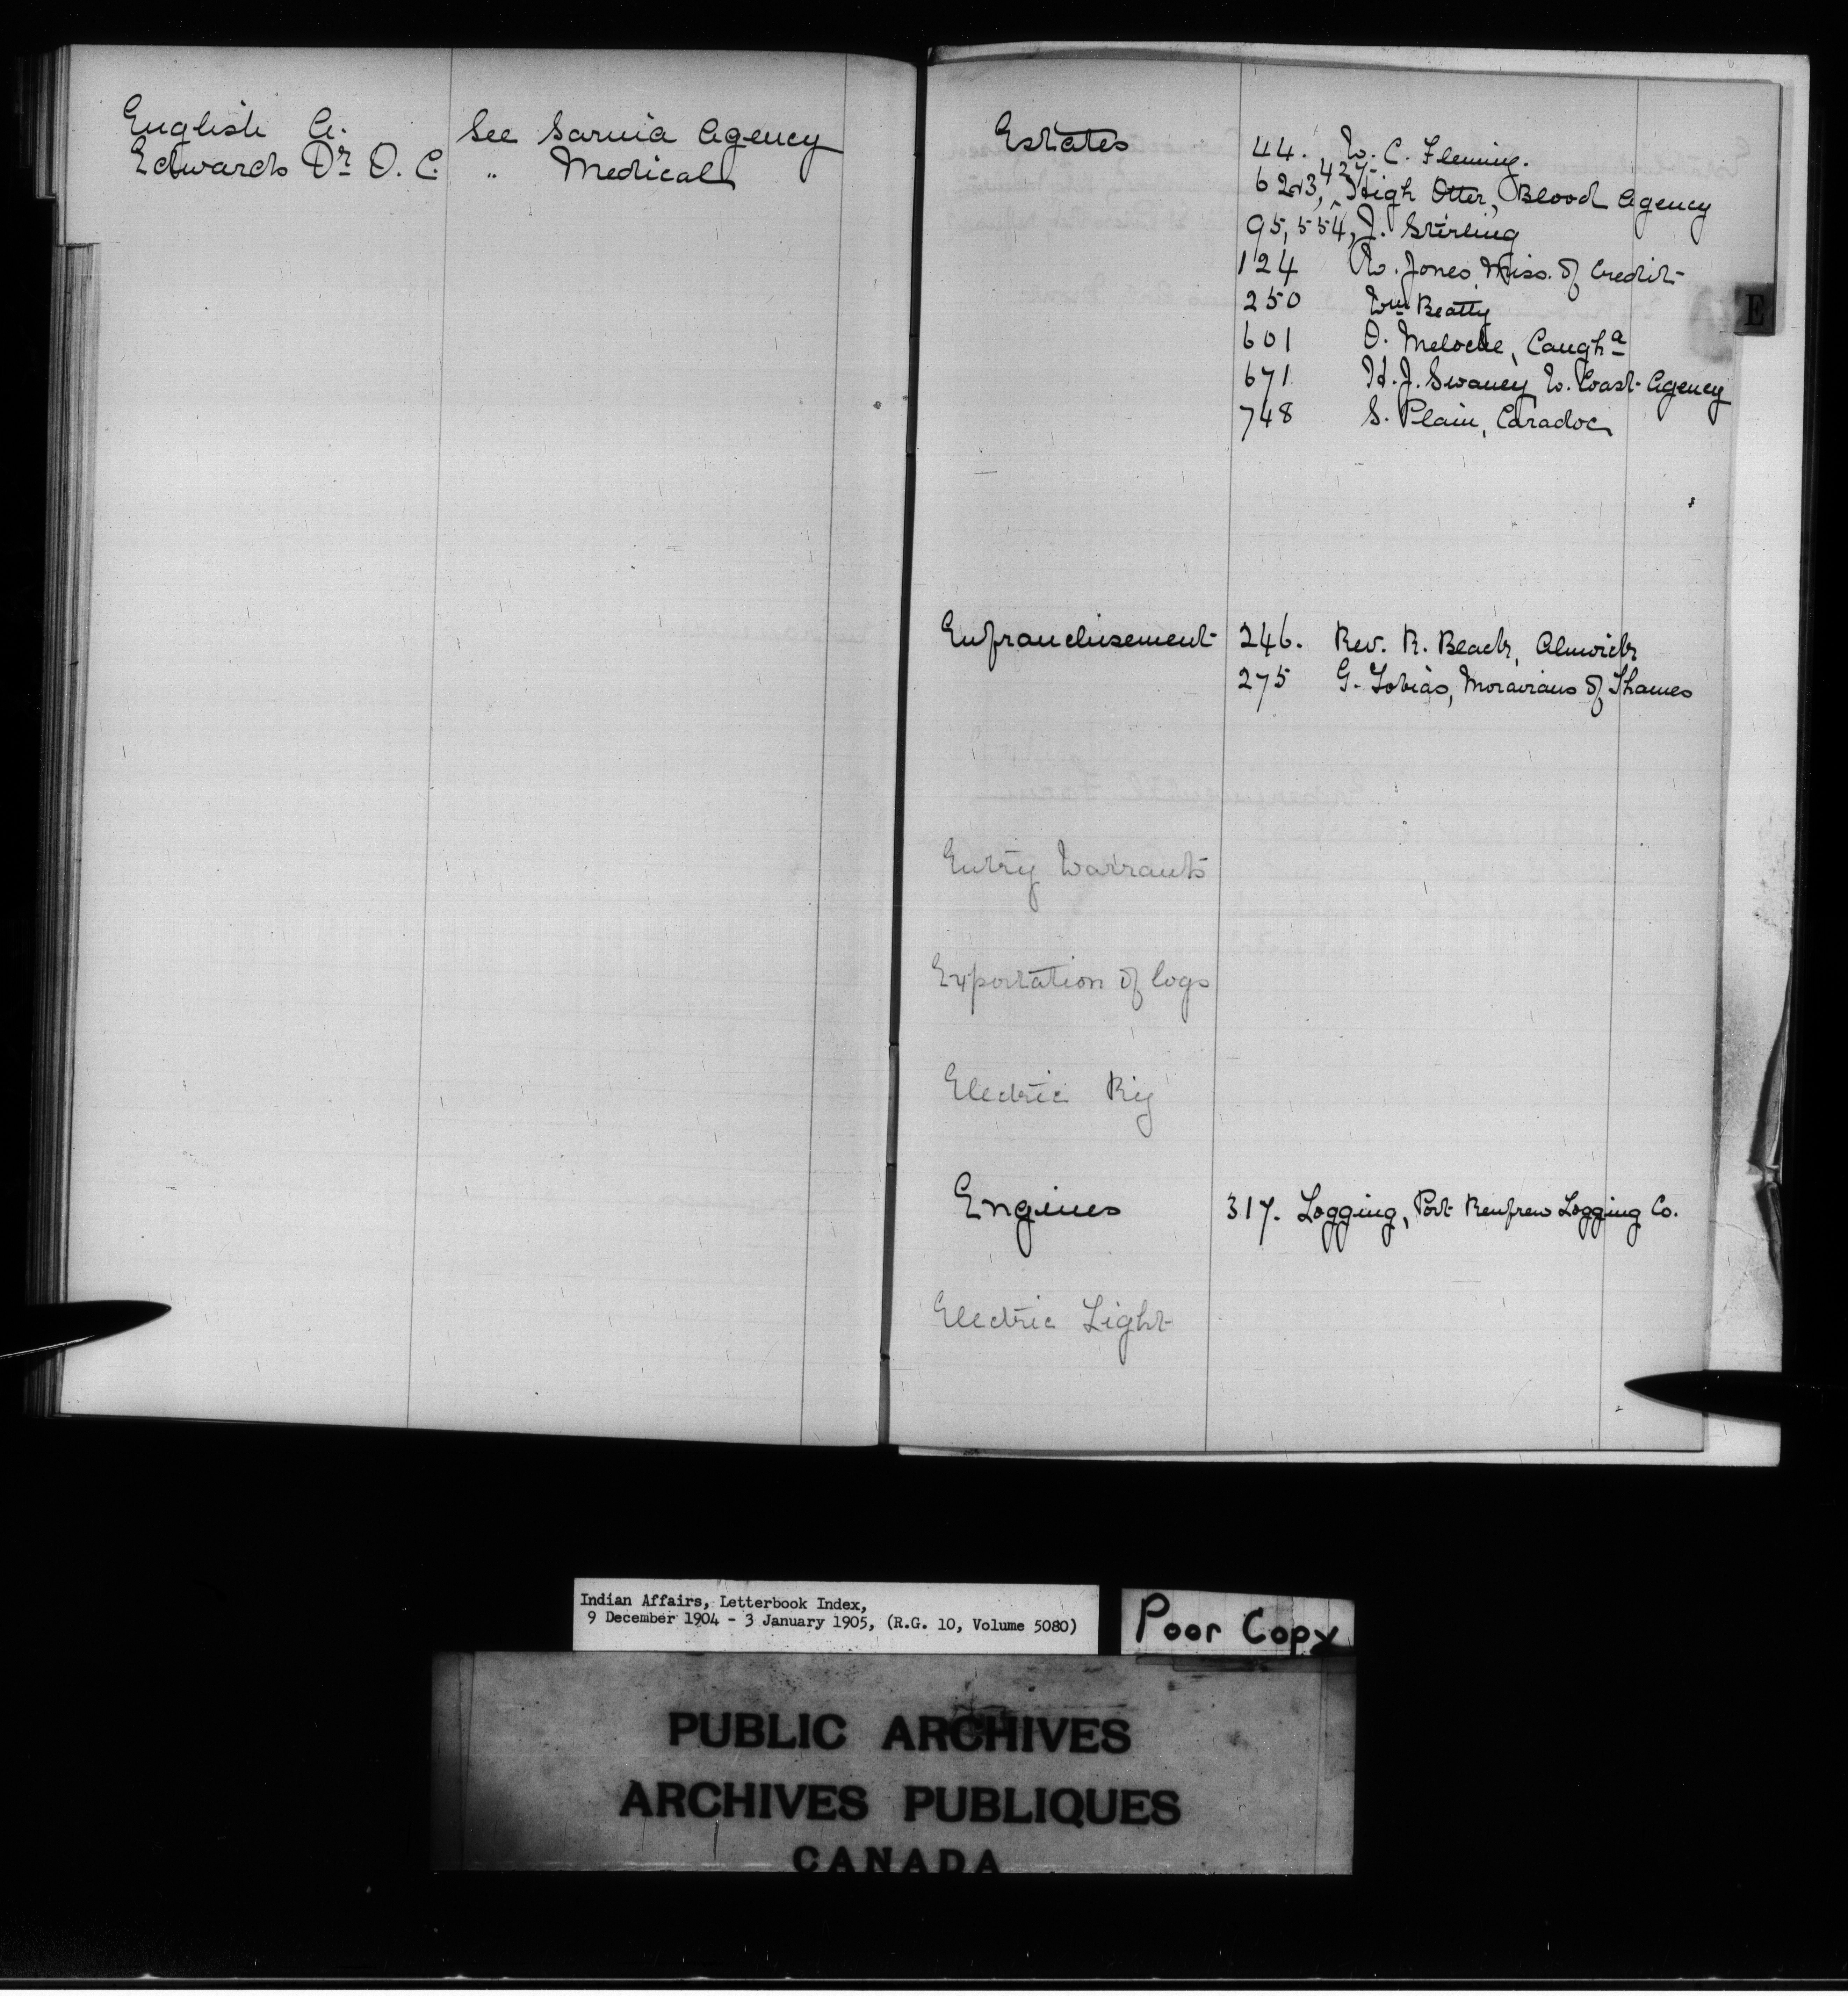 English A. See Sarnia Agency
Edwards Dr O. C. " Medical
Estates
44. W. C. Fleming.
427
62&3, High Otter, Blood Agency
95, 554, J. Stirling
124 W. Jones, Miss. of Credit
250 Wm Beatty
601 O. Meloche, Caugha
671 H. J. Swaney, W. Coast Agency
748 S. Plain, Caradoc
E
Enfranchisement 246. Rev. R. Black, Alnwick
275 G. Tobias, Moravians of Thames
Entry Warrants
Exportation of logs
Electric Ry
Engines 317. Logging, Port Renfrew Logging Co.
Electric Light
Indian Affairs, Letterbook Index,
9 December 1904 - 3 January 1905, (R.G. 10, Volume 5080)
Poor Copy
PUBLIC ARCHIVES
ARCHIVES PUBLIQUES
CANADA